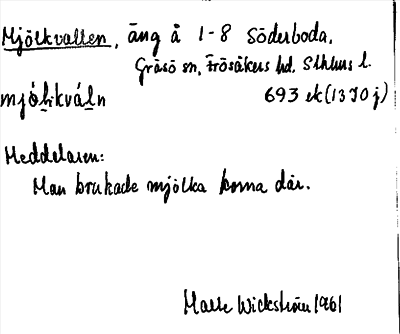 Mjölkvallen, äng å 1-8 Söderboda,
Gräsö sn, Frösåkers hd, Sthlms l.
mjó̀likvál̀n 693 ek (1370 j)
Meddelaren:
Man brukade mjölka korna där.
Malte Wickström 1961